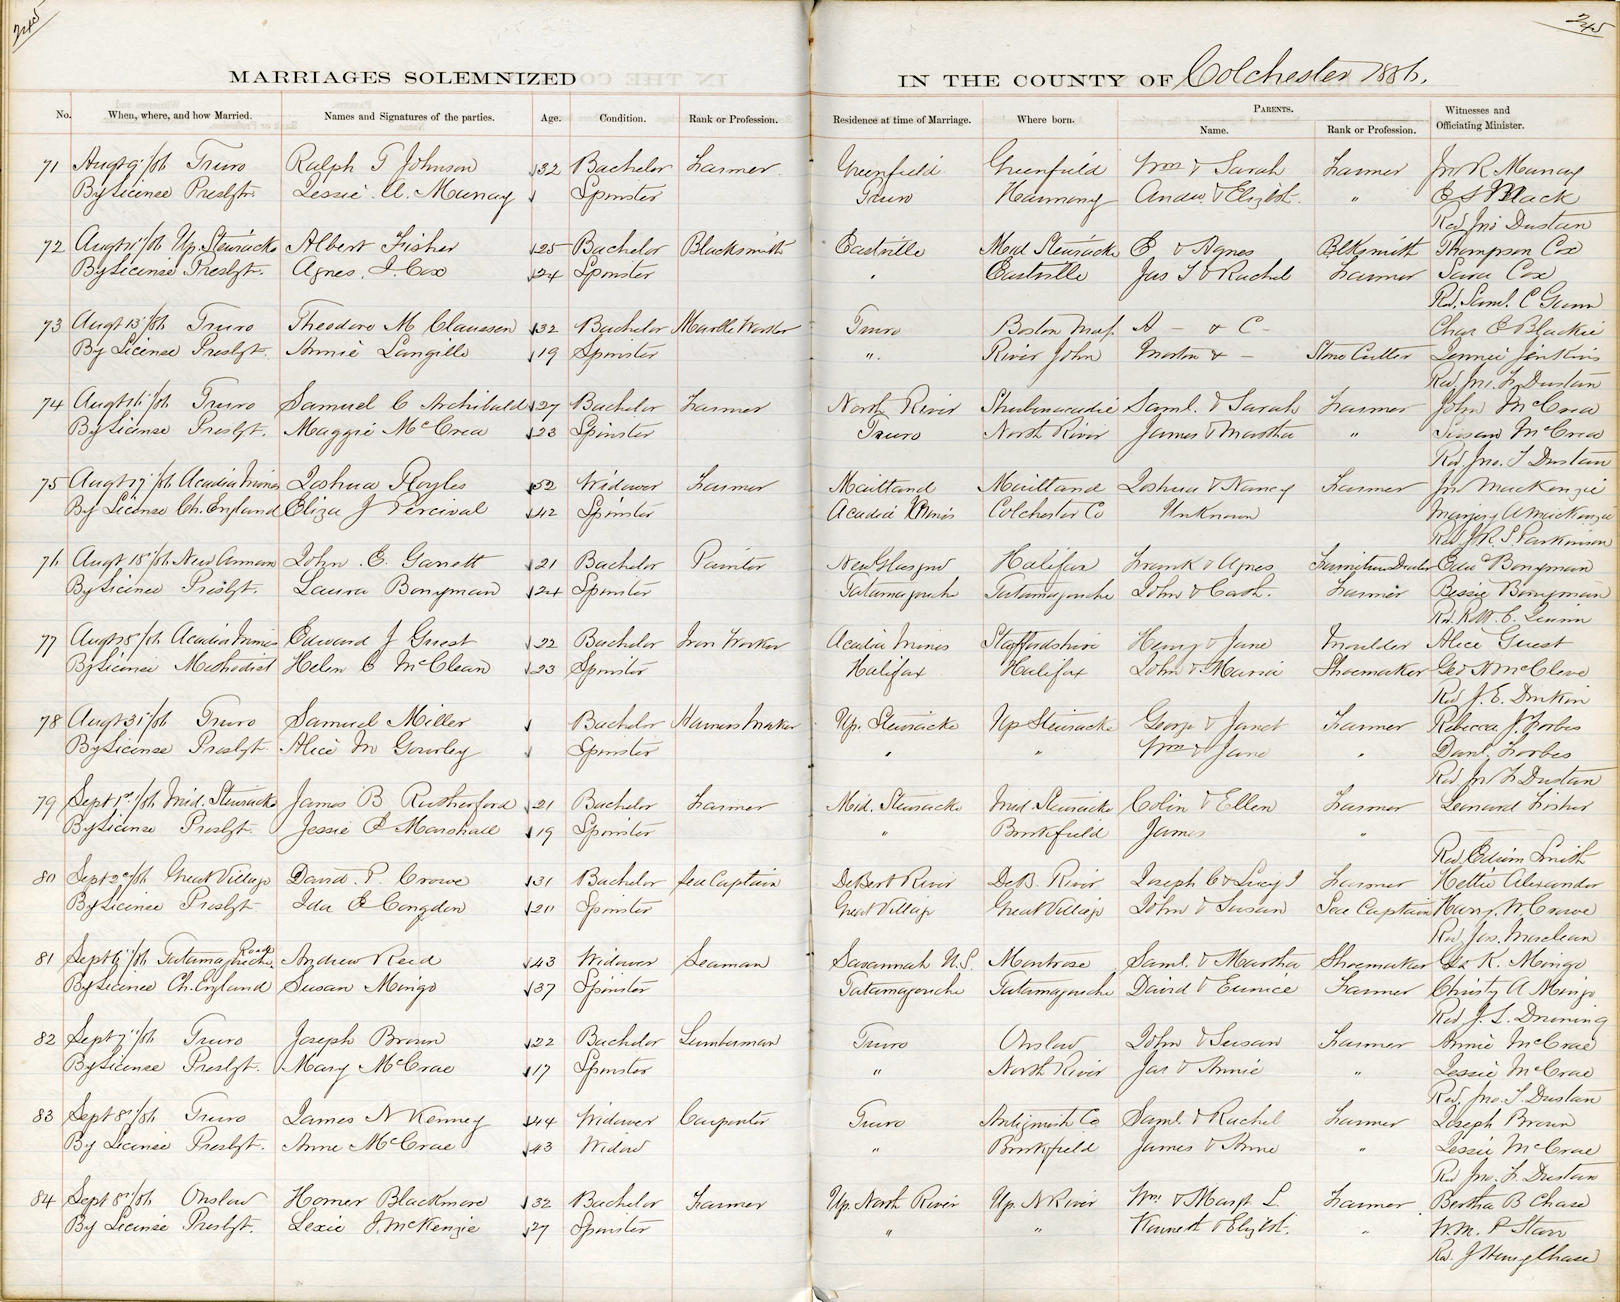 245
245
MARRIAGES SOLEMNIZED IN THE COUNTY OF Colchester 1886.
No. When, where, and how Married. Names and Signatures of the parties. Age. Condition. Rank or Profession. Residence at time of Marriage. Where born. PARENTS. Name. Rank or Profession. Witnesses and Officiating Minister.
71 Augt 9"/86 Truro Ralph T Johnson 32 Bachelor Farmer Greenfield Greenfield Wm & Sarah Farmer Jno R Murray
By License Presbytn. Jessie A. Murray Spinster Truro Harmony Andw & Elizbt. " E S Mack
Rev Jno Dustan
72 Augt 11"/86 Up. Stewiacke Albert Fisher 25 Bachelor Blacksmith Eastville Mid Stewiacke E & Agnes Blksmith Thompson Cox
By License Presbyt. Agnes. J. Cox 24 Spinster " Eastville Jas T & Rachel Farmer Sara Cox
Rev. Saml. C Gunn
73 Augt 13"/86 Truro Theodore M Claussen 32 Bachelor Marble Worker Truro Boston Mass. A - & C - Chas E Blackie
By License Presbyt. Annie Langille 19 Spinster ". River John Morton & - Stone Cutter Jennie Jenkins
Rev. Jno. F. Dustan
74 Augt 16"/86 Truro Samuel C Archibald 27 Bachelor Farmer North River Shubenacadie Saml. & Sarah Farmer John McCrea
By License Presbyt. Maggie McCrea 23 Spinster Truro North River James & Martha " Susan McCrea
Rev Jno. F Dustan
75 Augt 17"/86 Acadia Mines Joshua Royles 52 Widower Farmer Maitland Maitland Joshua & Nancy Farmer Jno MacKenzie
By License Ch. England Eliza J Percival 42 Spinster Acadia Mines Colchester Co Unknown Marjery A MacKenzie
Rev J R S Parkinson
76 Augt 18"/86 New Annan John E. Garrett 21 Bachelor Painter New Glasgow Halifax Frank & Agnes Furniture Dealer Edw Bonyman
By License Presbyt. Laura Bonyman 24 Spinster Tatamagouche Tatamagouche John & Cath. Farmer Bessie Bonyman
Rev. Robt. C. Quinn
77 Augt 25"/86 Acadia Mines Edward J Guest 22 Bachelor Iron Worker Acadia Mines Staffordshire Henry & Jane Moulder Alice Guest
By License Methodist Helen C McClean 23 Spinster Halifax Halifax John & Maria Shoemaker Geo N McCleve
Rev J. E. Donkin
78 Augt 31"/86 Truro Samuel Miller Bachelor Harness Maker Up. Stewiacke Up Stewiacke George & Janet Farmer Rebecca J. Forbes
By License Presbyt. Alice M Gourley Spinster " " Wm & Jane " Danl. Forbes
Rev Jno F Dustan
79 Sept 1st/86 Mid. Stewiacke James B Rutherford 21 Bachelor Farmer Mid. Stewiacke Mid. Stewiacke Colin & Ellen Farmer Leonard Fisher
By License Presbyt. Jessie E Marshall 19 Spinster " Brookfield James "
Rev. Edwin Smith
80 Sept 2nd/86 Great Village David. P. Crowe 31 Bachelor Sea Captain DeBert River DeB. River Joseph C & Lucy J Farmer Hettie Alexander
By License Presbyt. Ida E Congdon 20 Spinster Great Village Great Village John & Susan Sea Captain Harry. W. Crowe
Rev Jas. Maclean
81 Sept 6"/86 Tatamagouche Road Andrew Reid 43 Widower Seaman Savannah U.S. Montrose Saml. & Martha Shoemaker Geo K. Mingo
By License Ch. England Susan Mingo 37 Spinster Tatamagouche Tatamagouche David & Eunice Farmer Christy A Mingo
Rev J. L. Downing
82 Sept 7"/86 Truro Joseph Brown 22 Bachelor Lumberman Truro Onslow John & Susan Farmer Annie McCrae
By License Presbyt. Mary McCrae 17 Spinster " North River Jas & Annie " Jessie McCrae
Rev. Jno. F. Dustan
83 Sept 8"/86 Truro James N Kenney 44 Widower Carpenter Truro Antigonish Co Saml. & Rachel Farmer Joseph Brown
By License Presbyt. Anne McCrae 43 Widow " Brookfield James & Anne " Jessie McCrae
Rev Jno. F. Dustan
84 Sept 8"/86 Onslow Homer Blackmore 32 Bachelor Farmer Up. North River Up. N River Wm. & Margt L. Farmer Bertha B Chase
By License Presbyt. Lexie J. McKenzie 27 Spinster " " Kenneth & Elizbt. " W.M. P Starr
Rev. J Henry Chase